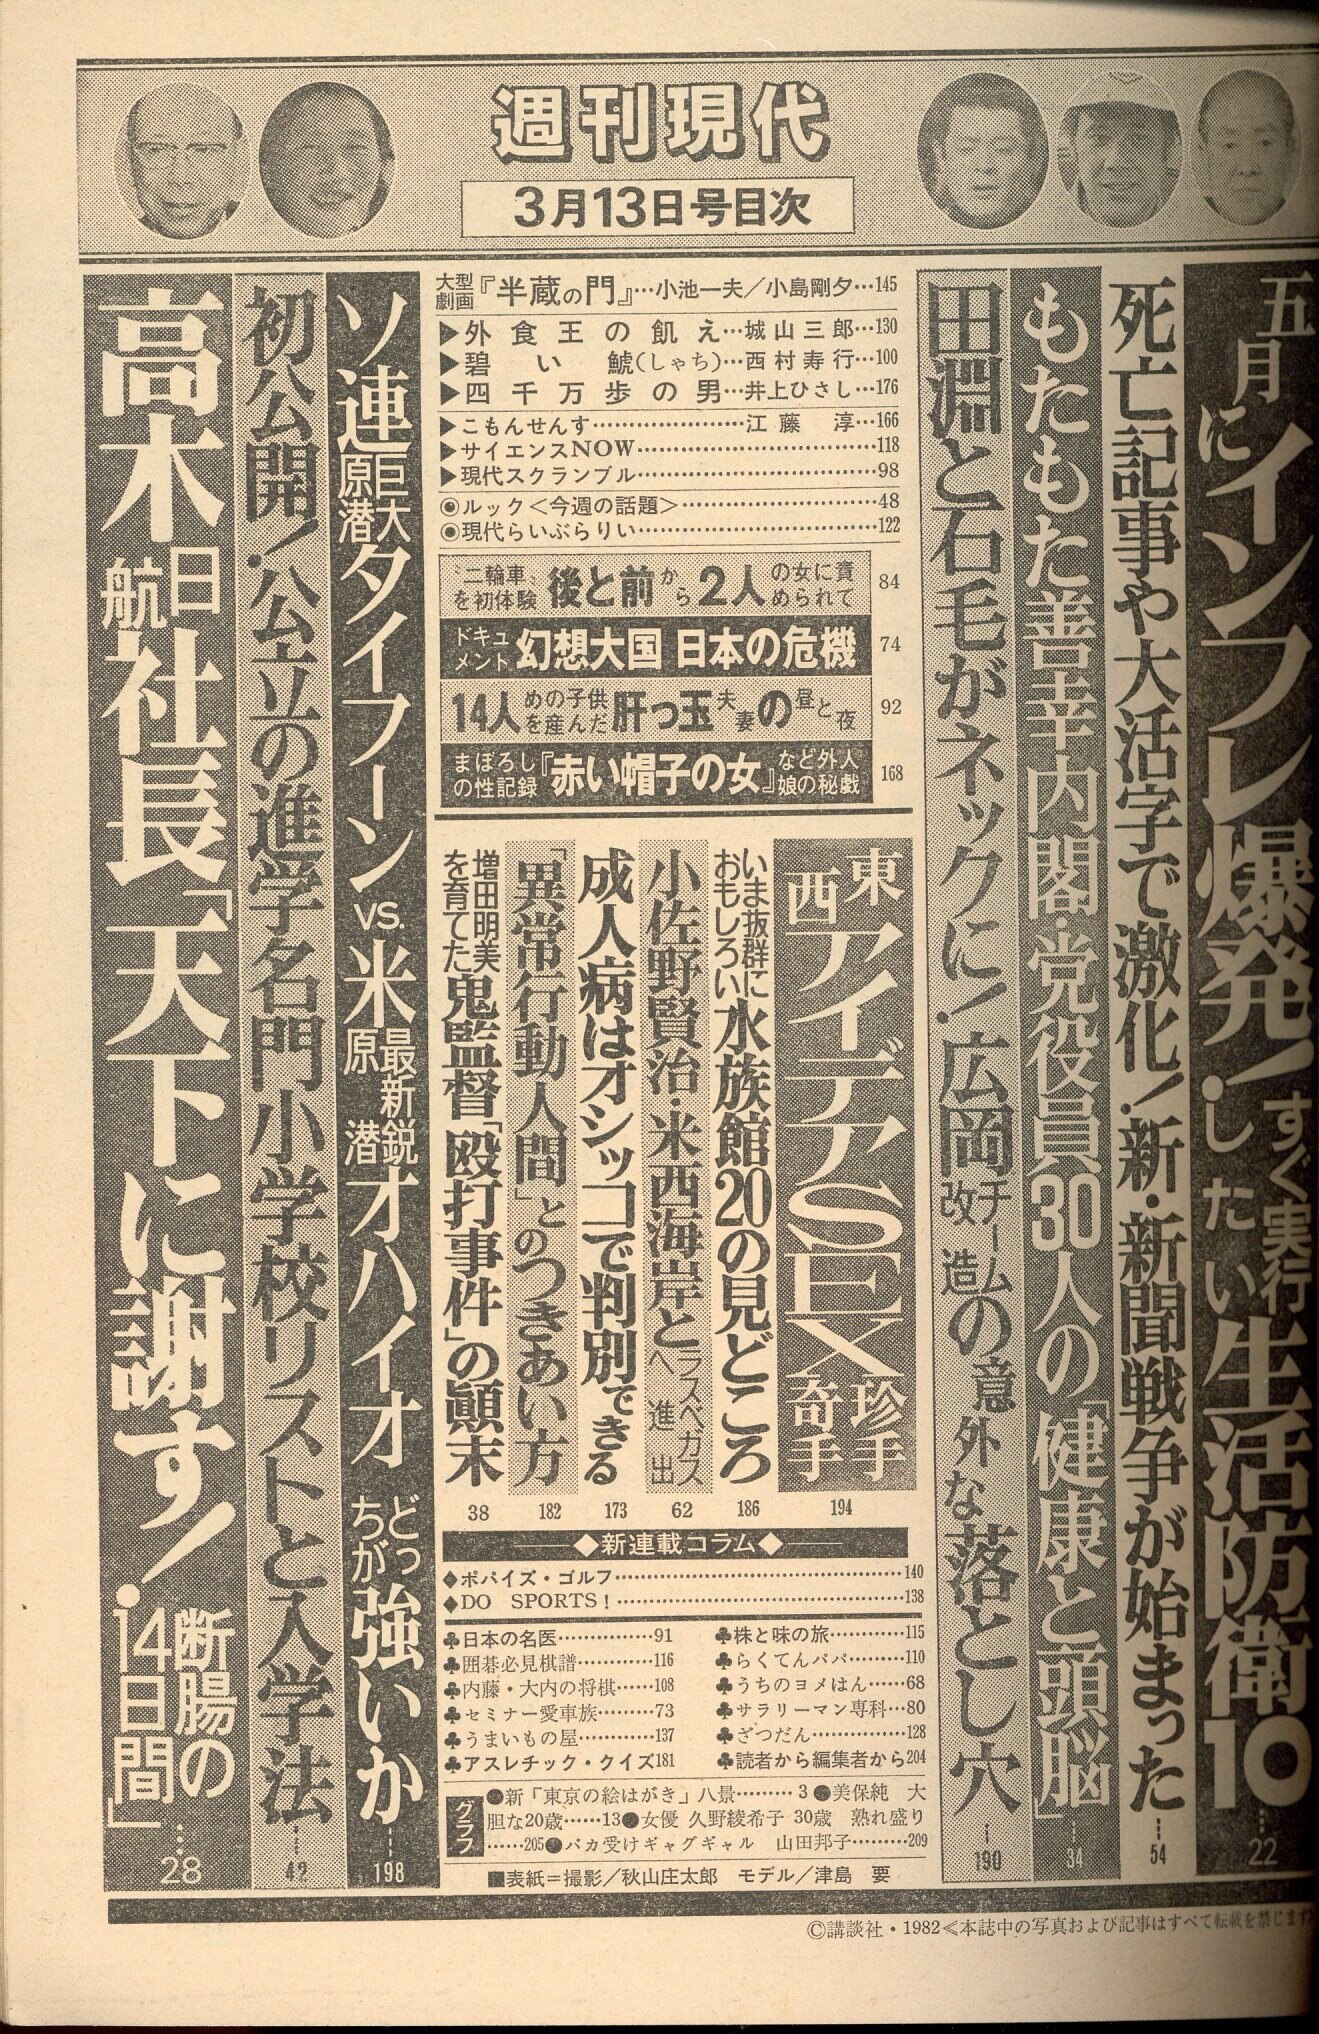 週刊現代
3月13日号目次
五月にインフレ爆発!すぐ実行したい生活防衛10…22
死亡記事や大活字で激化!新・新聞戦争が始まった…54
もたもた善幸内閣・党役員30人の「健康と頭脳」…34
田淵と石毛がネックに!広岡チーム改造の意外な落とし穴…190
大型劇画『半蔵の門』…小池一夫/小島剛夕…145
▶外食王の飢え…城山三郎…130
▶碧い鯱(しゃち)…西村寿行…100
▶四千万歩の男…井上ひさし…176
▶こもんせんす…江藤淳…166
▶サイエンスNOW…118
▶現代スクランブル…98
◉ルック<今週の話題>…48
◉現代らいぶらりい…122
〝二輪車〟を初体験 後と前から2人の女に責められて 84
ドキュメント 幻想大国 日本の危機 74
14人めの子供を産んだ肝っ玉夫妻の昼と夜 92
まぼろしの性記録『赤い帽子の女』など外人娘の秘戯 168
東西アイデアSEX珍手奇手 194
いま抜群におもしろい水族館20の見どころ 186
小佐野賢治・米西海岸とラスベガスへ進出 62
成人病はオシッコで判別できる 173
「異常行動人間」とのつきあい方 182
増田明美を育てた鬼監督「殴打事件」の顚末 38
◆新連載コラム◆
◆ポパイズ・ゴルフ…140
◆DO SPORTS!…138
♣日本の名医…91
♣囲碁必見棋譜…116
♣内藤・大内の将棋…108
♣セミナー愛車族…73
♣うまいもの屋…137
♣アスレチック・クイズ181
♣株と味の旅…115
♣らくてんパパ…110
♣うちのヨメはん…68
♣サラリーマン専科…80
♣ざつだん…128
♣読者から編集者から204
グラフ
●新「東京の絵はがき」八景…3●美保純 大
胆な20歳…13●女優 久野綾希子 30歳 熟れ盛り
…205●バカ受けギャグギャル 山田邦子…209
■表紙=撮影/秋山庄太郎 モデル/津島 要
ソ連巨大原潜タイフーンvs.米最新鋭原潜オハイオ どっちが強いか…198
初公開!公立の進学名門小学校リストと入学法…42
高木日航社長「天下に謝す!断腸の14日間」…28
©講談社・1982≪本誌中の写真および記事はすべて転載を禁じます